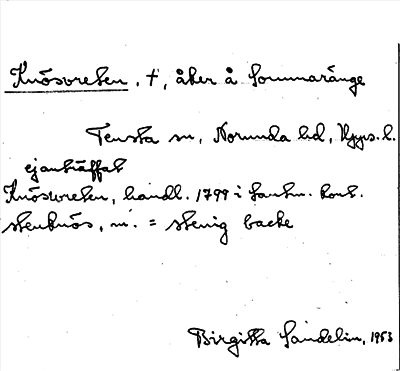 Knösvreten, †, åker å Sommaränge
Tensta sn, Norunda hd, Upps. l.
ej anträffat
Knösvreten, handl. 1799 i Lantm. kont.
stenknös, m. = stenig backe
Birgitta Sandelin, 1953